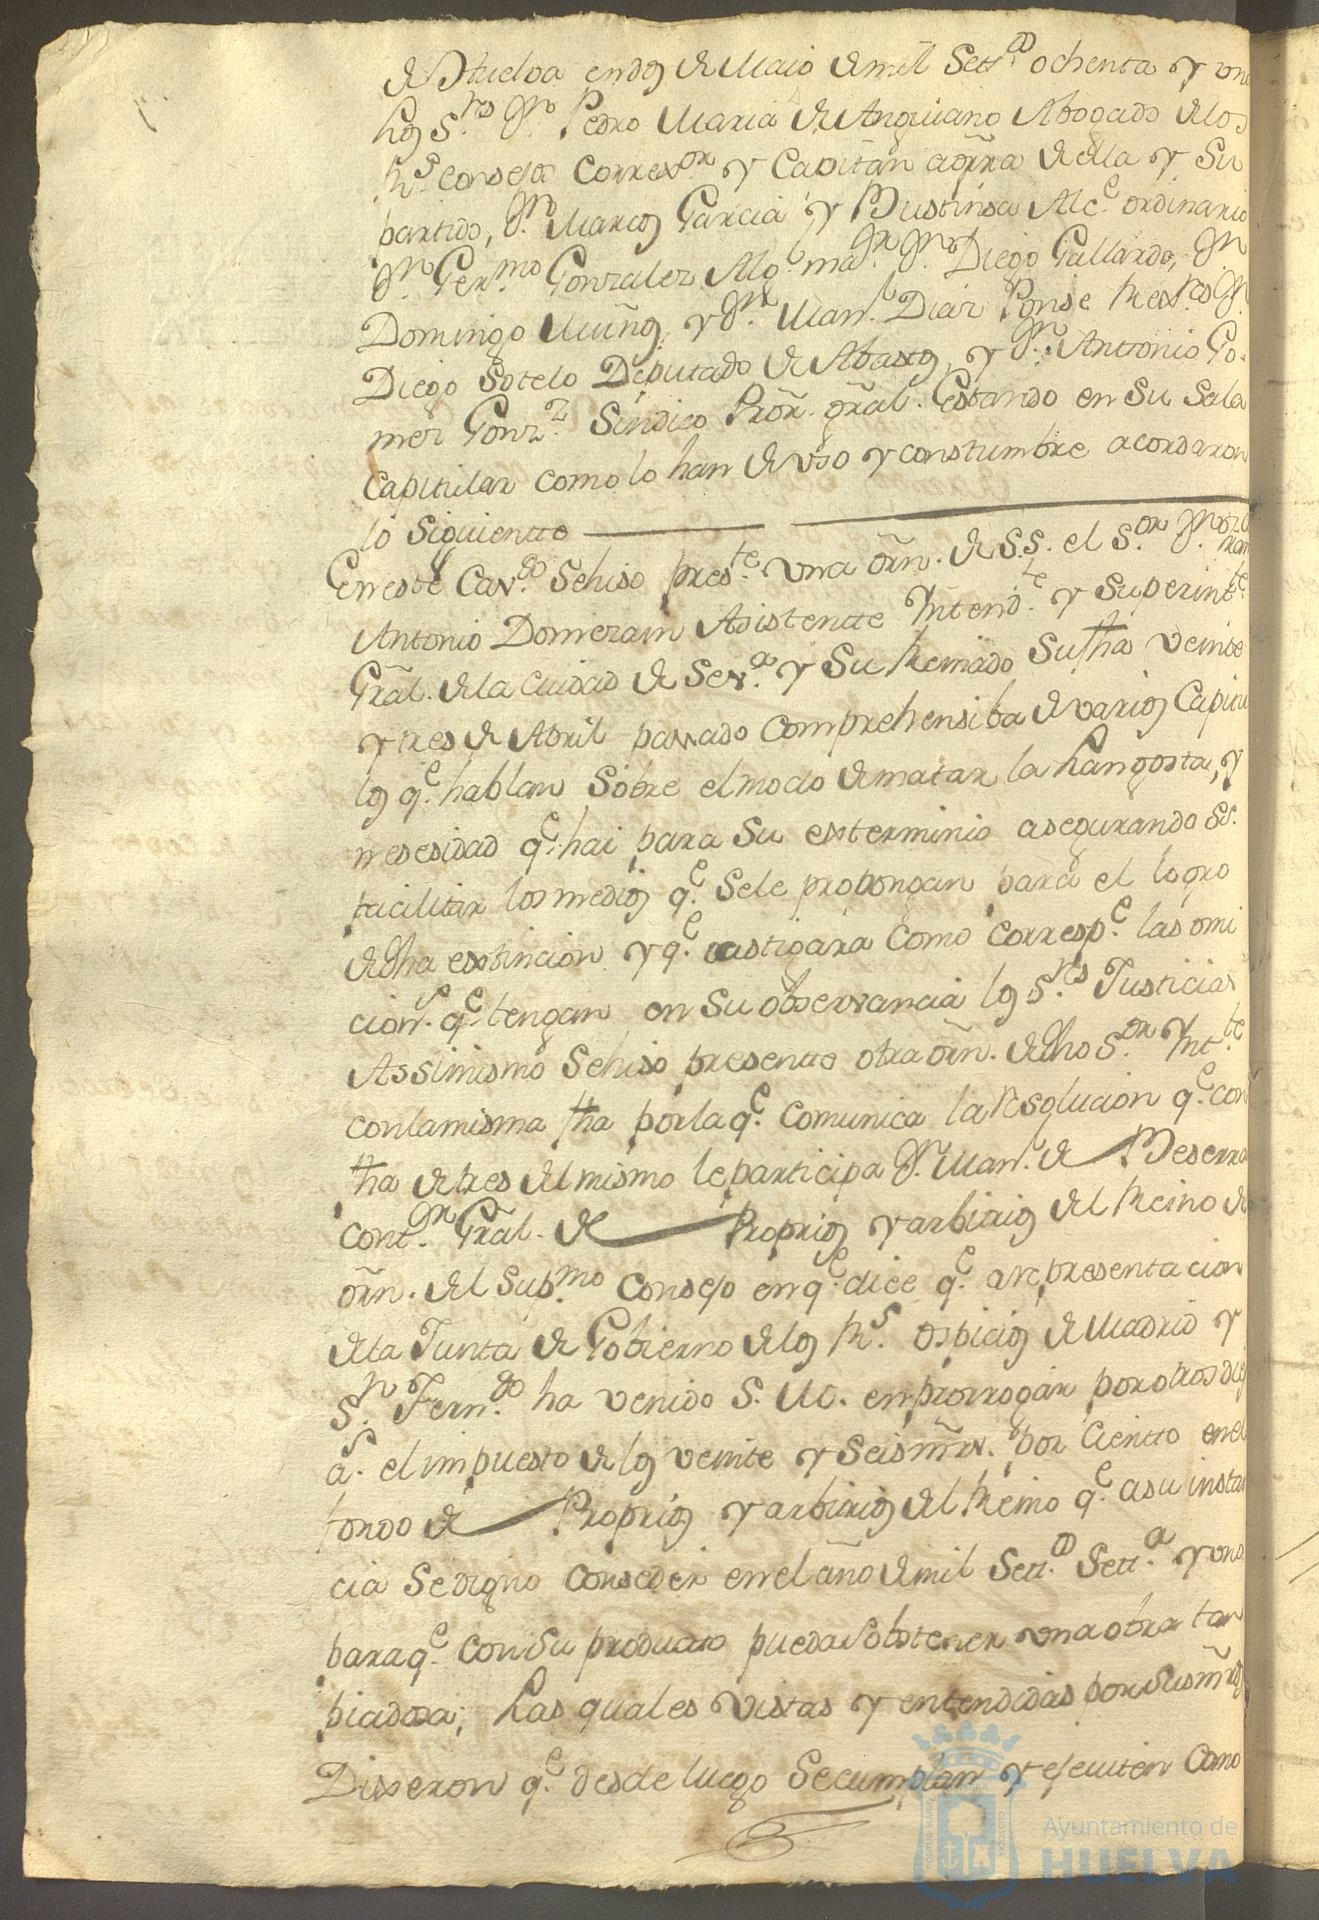 de Huelva en dos de Maio de mil Sett.os ochenta y uno
los S.res D.n Pedro Maria de Anguiano Abogado de los
R.s consejos Correx.or y Capitan a grra de ella y Su
partido, D.n Marcos Garcia y Bustinsa Alc.e ordinario
D.n Ger.mo Gonzalez Alg.l ma.or D.n Diego Gallardo, D.n
Domingo Muños, y D.n Man.l Diaz Ponse Rex.res D.n
Diego Sotelo Deputado de Abastos, y D.n Antonio Go-
mez Gonz.z Sindico Prõr. grãl. Estando en Su Sala
Capitular como lo han de uso y constumbre acordaron
lo Siguiente
En este Cav.do Se hiso pres.te una orn̄. de S.S. el S.or D.n
Antonio Domezain Asistente Yntend.te y Superint.te
Grãl. de la ciudad de Sev.a y Su Reinado Su fha veinte
y tres de Abril passado comprehensiba de varios Capitu
los q.e hablan Sobre el modo de matar la Langosta, y
nesesidad q.e hai para Su exterminio asegurando SS.
facilitar los medios q.e Se le propongan para el logro
de dha extincion y q.e castigara como corresp.e las omi
cion.s q.e tengan en Su observancia los S.res Justicias
Assimismo Se hiso presente otra orn̄. de dho S.or Ynt.te
con la misma fha por la q.e comunica la resolucion q.e con
fha de tres del mismo le participa D.n Man.l de Beserra
cont.or Grãl. de Proprios y arbitrios del Reino de
orn̄. del Sup.mo Consejo en q.e dice q.e a representacion
de la Junta de Gobierno de los R.s ospicios de Madrid y
S.n Fern.do ha venido S. M. en prorrogar por otros dies
a.s el impuesto de los veinte y Seis mr̃s. por Ciento en el
fondo de Proprios y arbitrios del Reino q.e a su instan
cia Se digno conseder en el año de mil Sett.os Sett.a y uno
para q.e con Su producto pueda Sobstener una obra tan
piadosa; Las quales vistas y entendidas por Sus mr̃ds
Dixeron q.e desde luego Se cumplan y ejecuten como
Ayuntamiento de
HUELVA